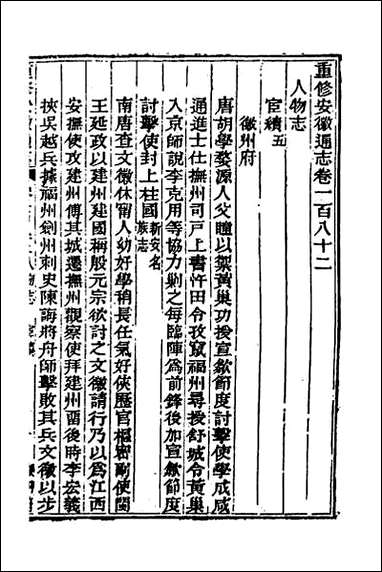 重修安徽通志卷一百八十二
人物志
宦績五
徽州府
唐胡學婺源人父瞳以禦黃巢功授宣歙節度討擊使學成咸
通進士仕撫州司戸上書忤田令孜竄福州尋授舒城令黃巢
入京師說李克用等協力剿之每臨陣為前鋒後加宣歙節度
討擊使封上柱國新安名族志
南唐查文徽休甯人幼好學稍長任氣好俠歷官樞密副使閩
王延政以建州建國稱殷元宗欲討之文徽請行乃以為江西
安撫使攻建州傅其城遷撫州觀察使拜建州留後時李宏義
挾吳越兵據福州劍州刺史陳誨將舟師擊敗其兵文徽以步